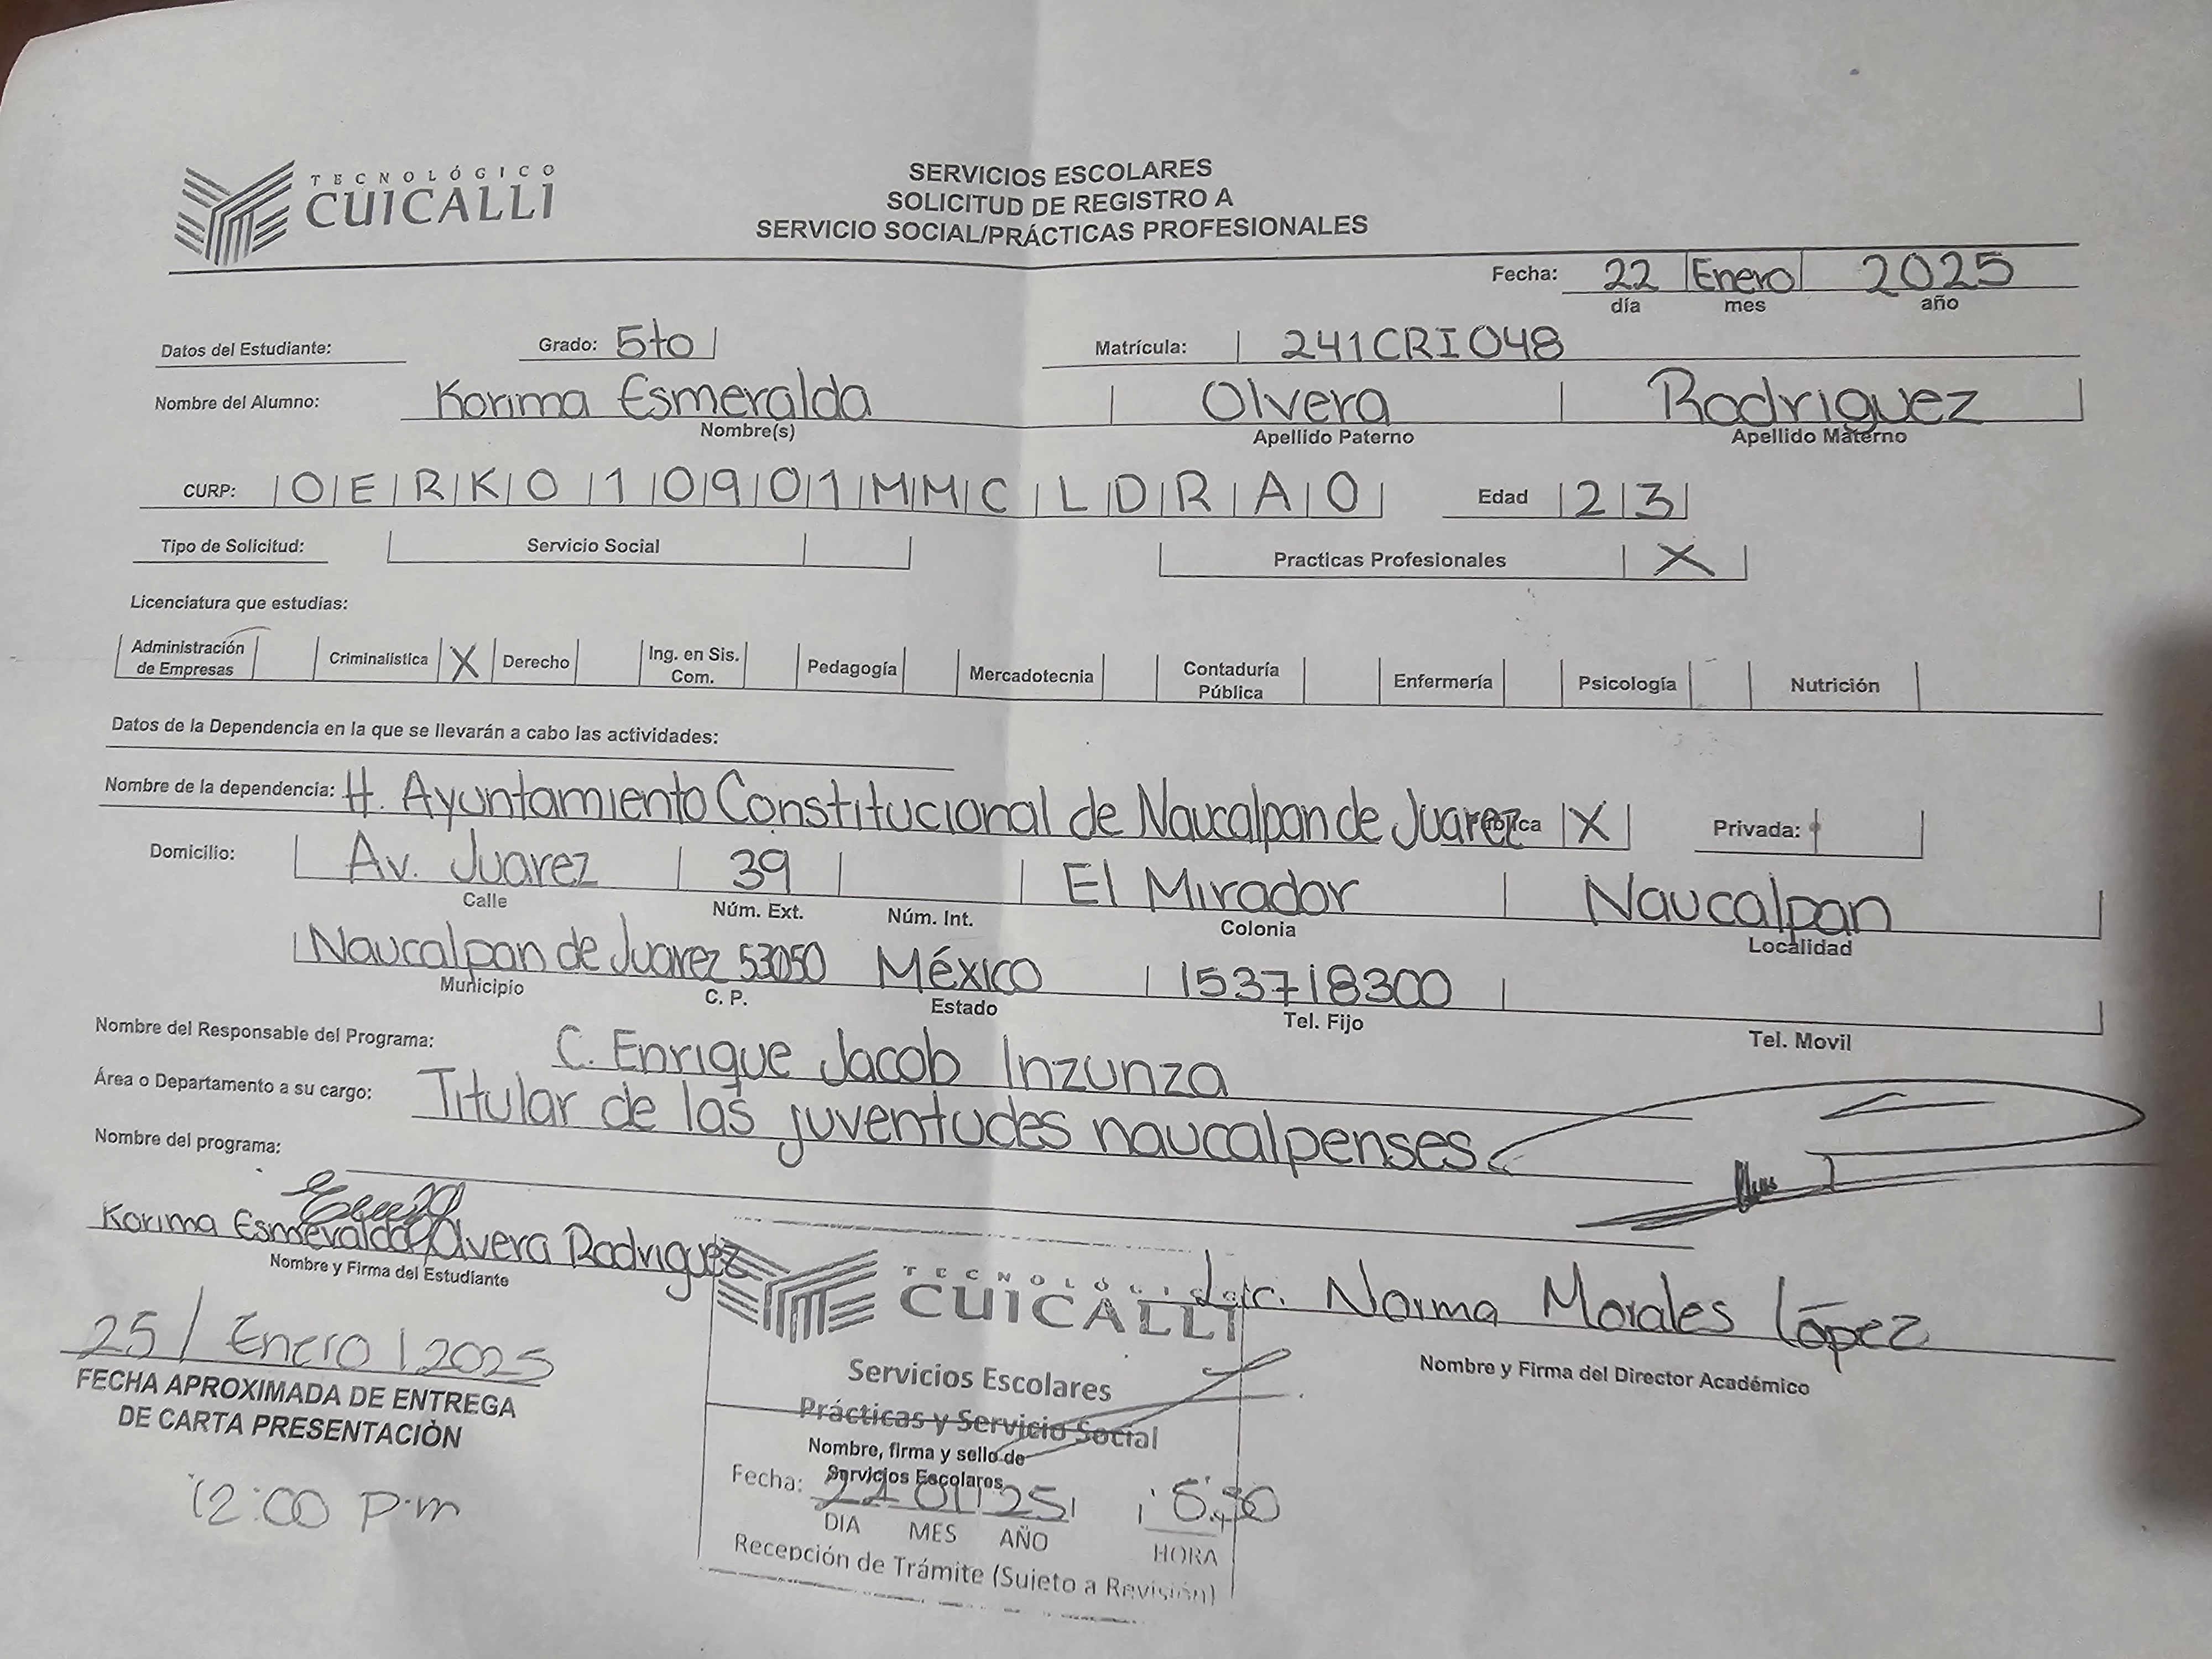 TECNOLÓGICO
CUICALLI
SERVICIOS ESCOLARES
SOLICITUD DE REGISTRO A
SERVICIO SOCIAL/PRÁCTICAS PROFESIONALES
Fecha: 22 Enero 2025
día mes año
Datos del Estudiante: Grado: 5to Matrícula: 241CRI048
Nombre del Alumno: Karima Esmeralda Olvera Rodriguez
Nombre(s) Apellido Paterno Apellido Materno
CURP: O E R K 0 1 0 9 0 1 M M C L D R A 0 Edad 2 3
Tipo de Solicitud: Servicio Social Practicas Profesionales X
Licenciatura que estudias:
Administración de Empresas Criminalística X Derecho Ing. en Sis. Com. Pedagogía Mercadotecnia Contaduría Pública Enfermería Psicología Nutrición
Datos de la Dependencia en la que se llevarán a cabo las actividades:
Nombre de la dependencia: H. Ayuntamiento Constitucional de Naucalpan de Juarez X Privada:
Domicilio: Av. Juarez 39 El Mirador Naucalpan
Calle Núm. Ext. Núm. Int. Colonia Localidad
Naucalpan de Juarez 53050 México 53718300
Municipio C. P. Estado Tel. Fijo Tel. Movil
Nombre del Responsable del Programa: C. Enrique Jacob Inzunza
Área o Departamento a su cargo: Titular de las juventudes naucalpenses
Nombre del programa:
Karima Esmeralda Olvera Rodriguez
Nombre y Firma del Estudiante
Lic. Norma Morales López
Nombre y Firma del Director Académico
25/Enero/2025
FECHA APROXIMADA DE ENTREGA
DE CARTA PRESENTACIÓN
12:00 p.m
TECNOLÓGICO
CUICALLI
Servicios Escolares
Prácticas y Servicio Social
Nombre, firma y sello de
Servicios Escolares
Fecha: 22 01 25
DIA MES AÑO HORA
Recepción de Trámite (Sujeto a Revisión)